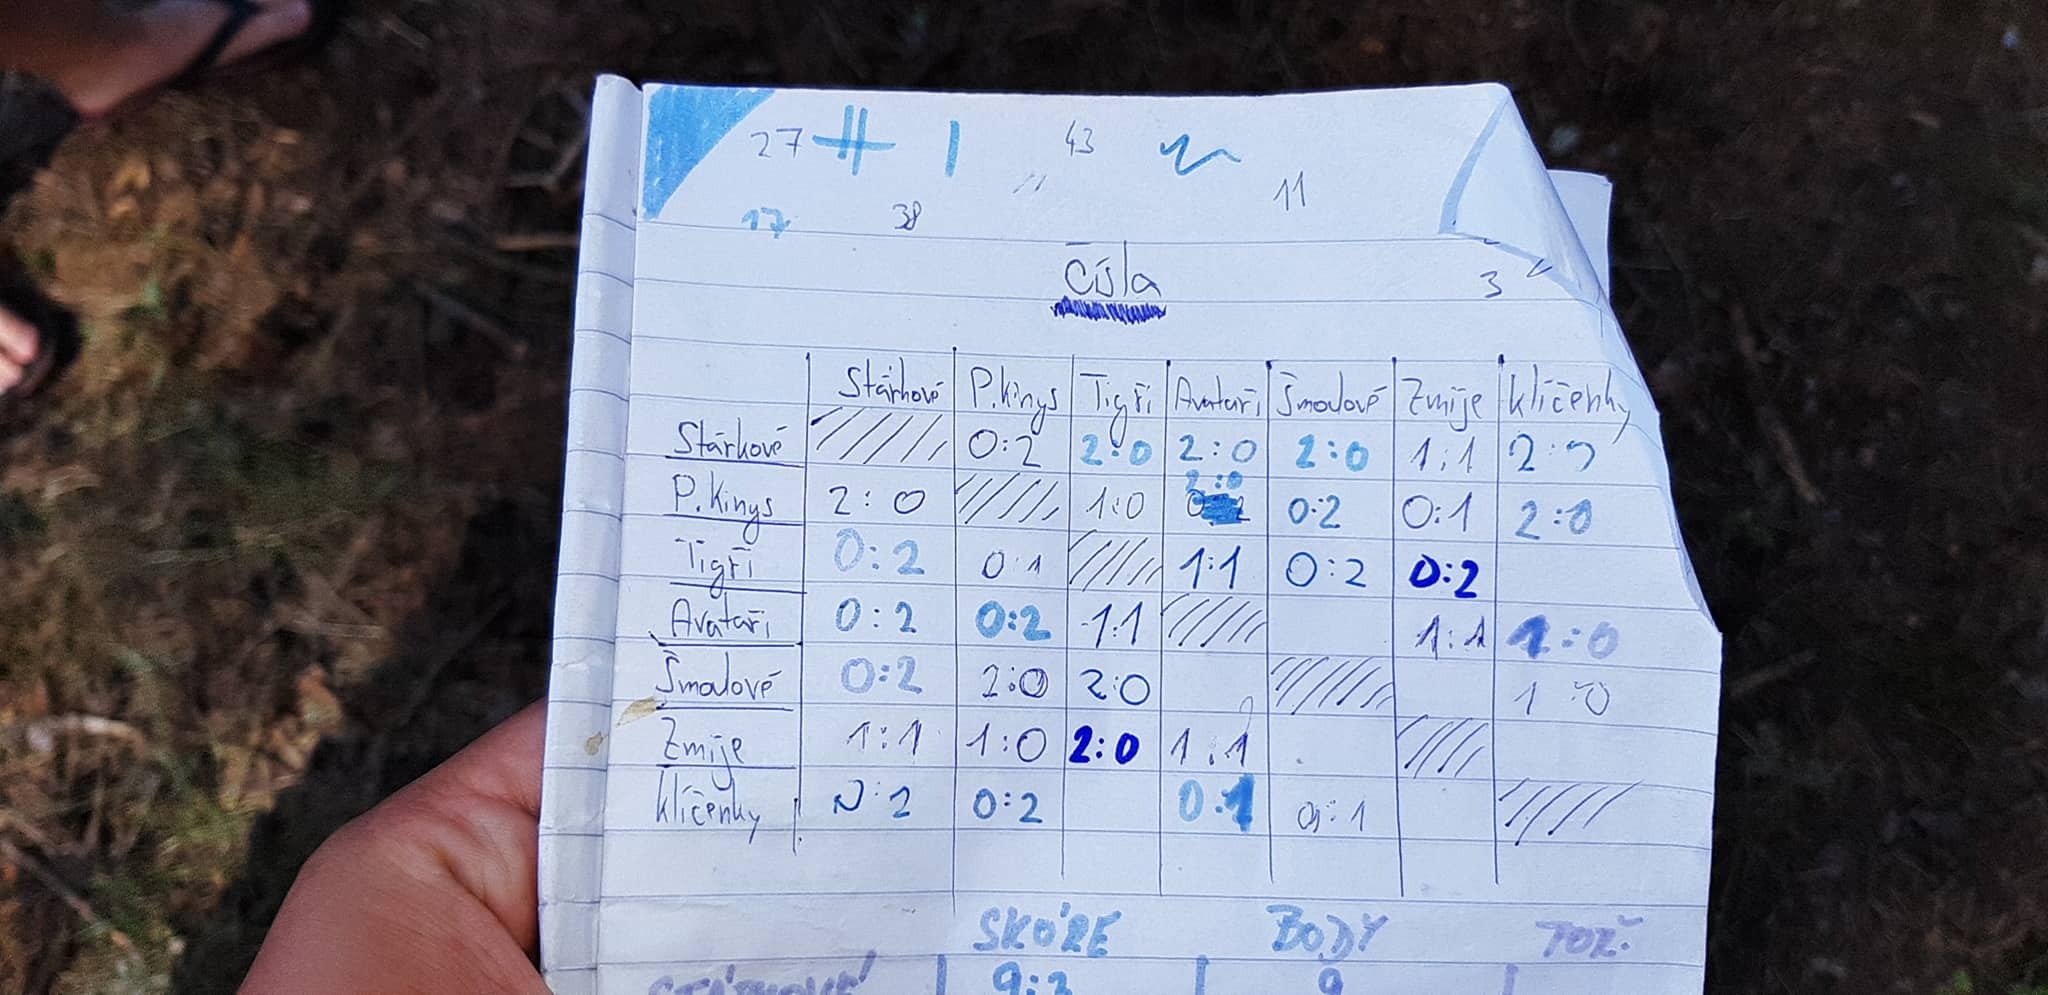 27 43
11
17 38
Čísla
3
Stárkové P.Kings Tigři Avataři Šmoulové Zmije Klíčenky
Stárkové 0:2 2:0 2:0 2:0 1:1 2:0
2:0
P.Kings 2:0 1:0 0:2 0:1 2:0
Tigři 0:2 0:1 1:1 0:2 0:2
Avataři 0:2 0:2 1:1 1:1 1:0
Šmoulové 0:2 2:0 2:0 1:0
Zmije 1:1 1:0 2:0 1:1
Klíčenky 0:2 0:2 0:1 0:1
SKÓRE BODY POŘ.
STÁRKOVÉ 9:3 9